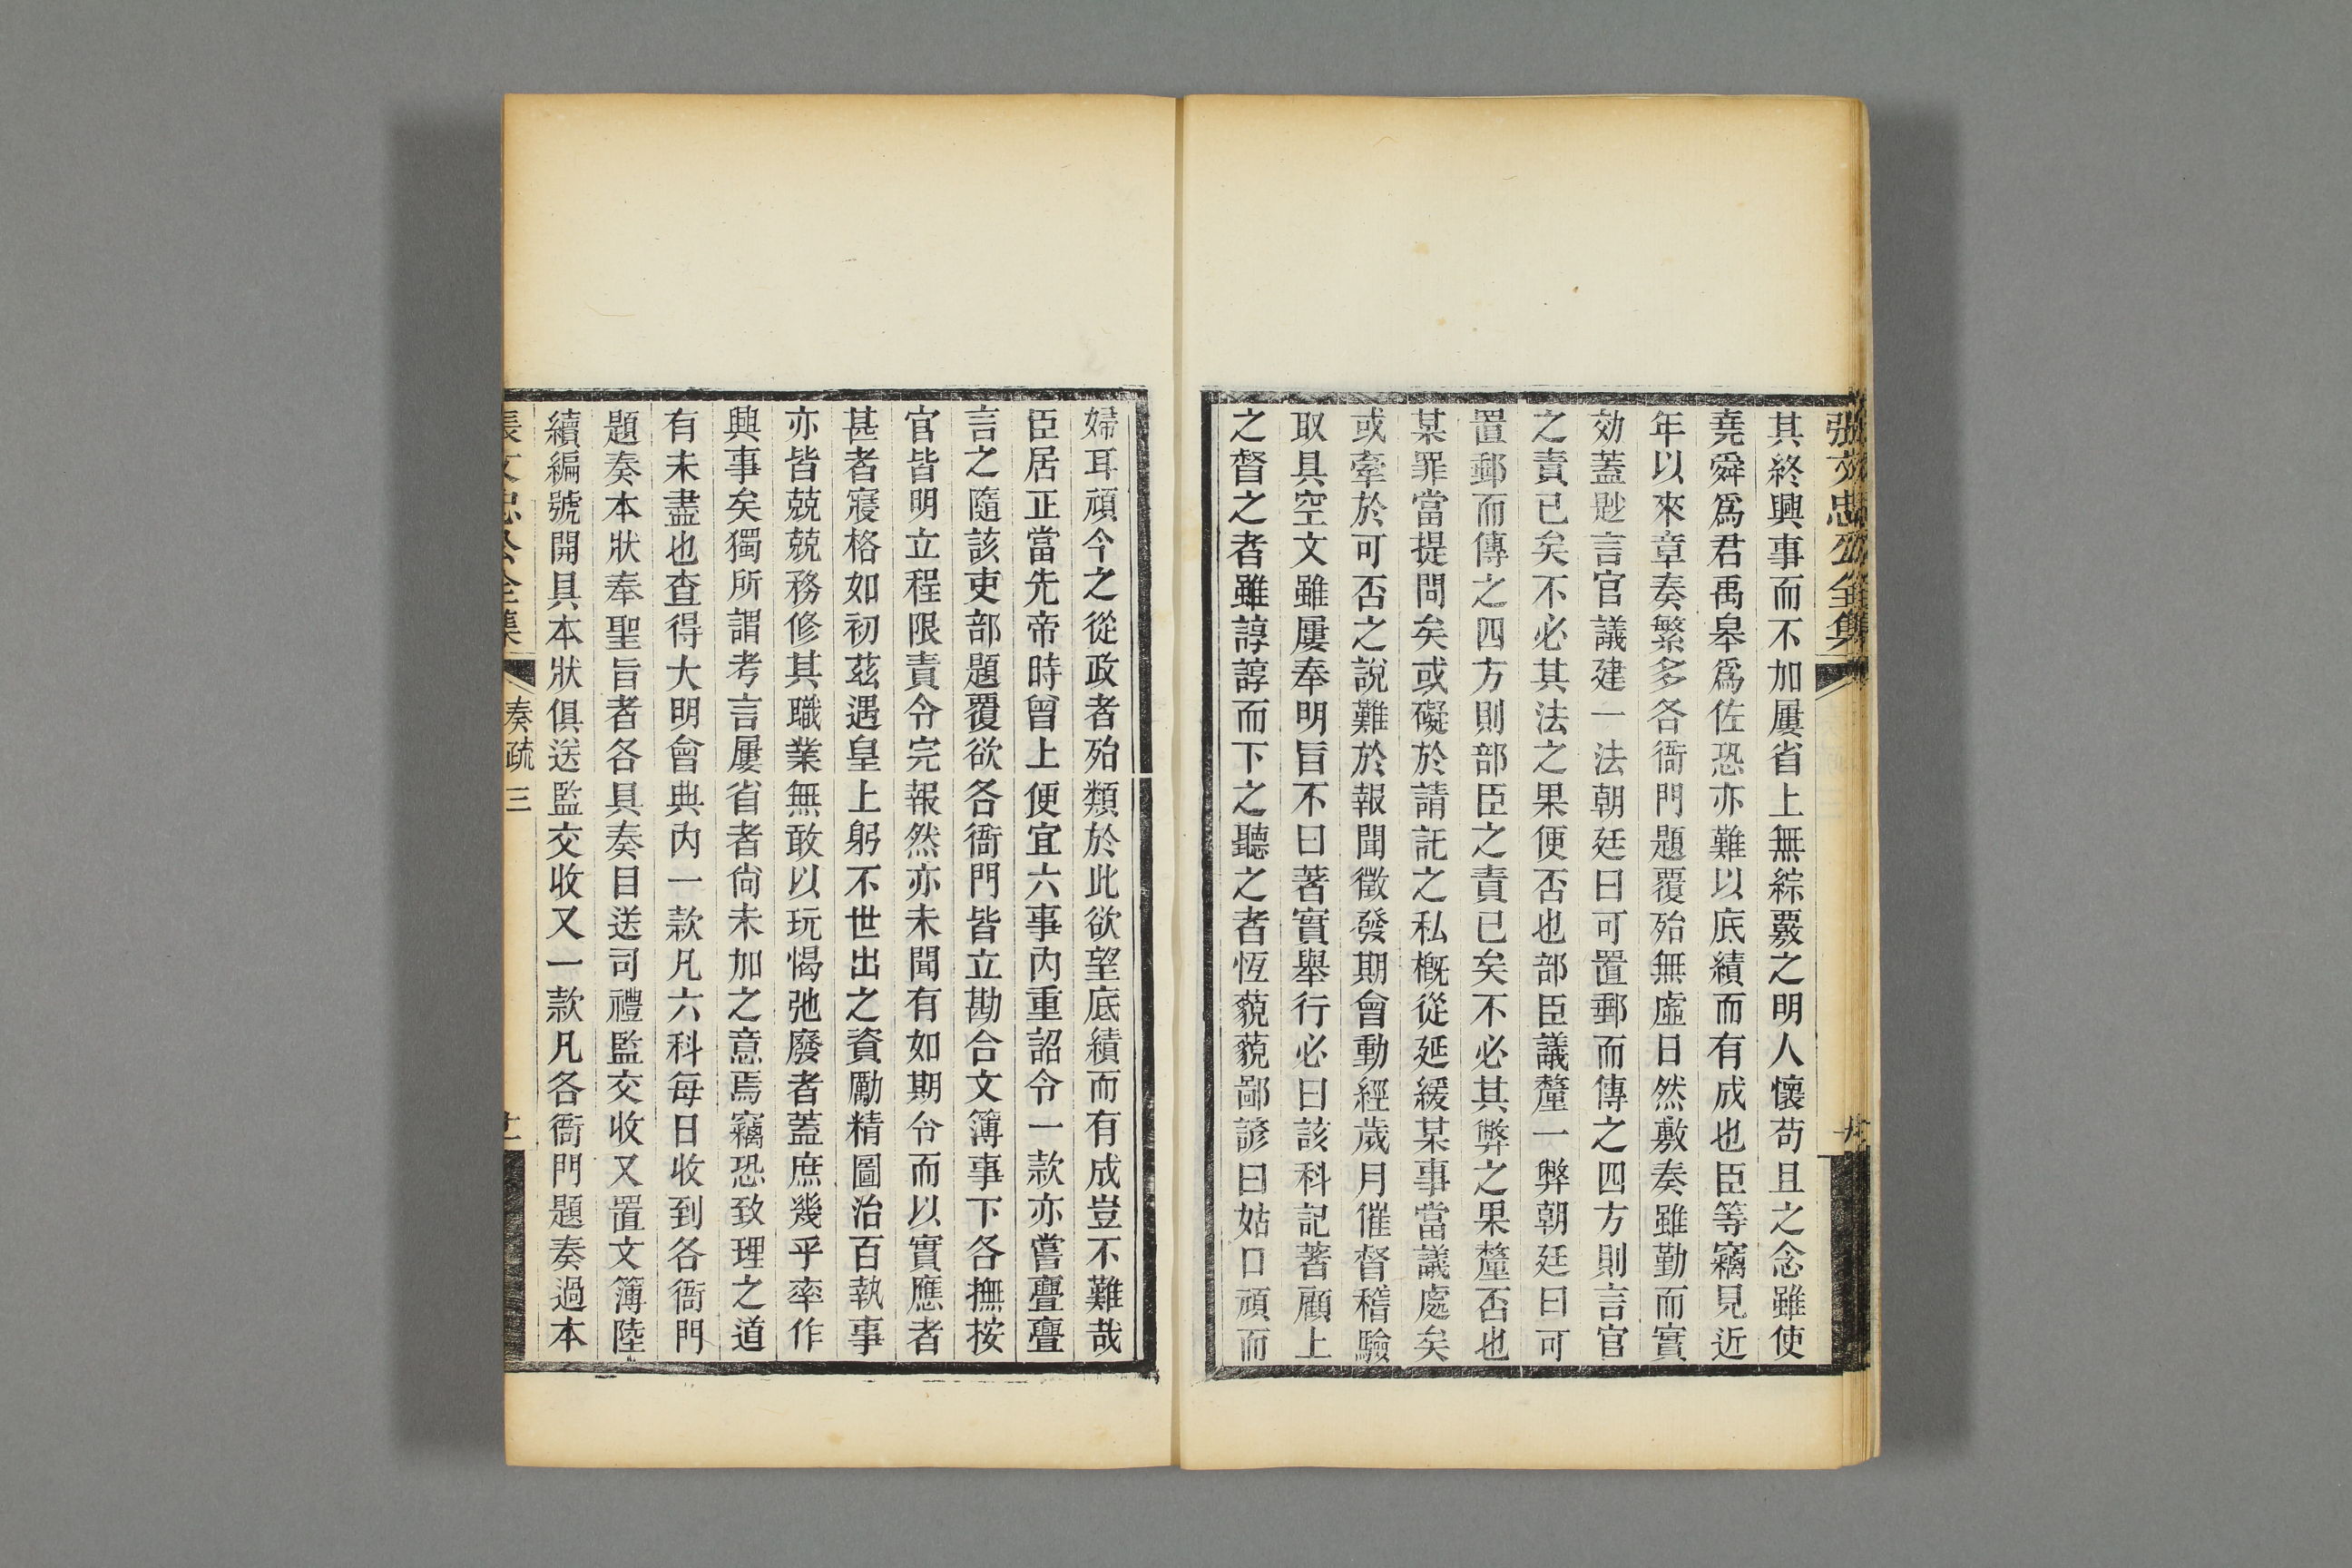 張文忠公全集
其終興事而不加屢省上無綜覈之明人懷苟且之念雖使
堯舜爲君禹皋爲佐恐亦難以底績而有成也臣等竊見近
年以來章奏繁多各衙門題覆殆無虛日然敷奏雖勤而實
効蓋尠言官議建一法朝廷曰可置郵而傳之四方則言官
之責已矣不必其法之果便否也部臣議釐一弊朝廷曰可
置郵而傳之四方則部臣之責已矣不必其弊之果釐否也
某罪當提問矣或礙於請託之私槪從延緩某事當議處矣
或牽於可否之說難於報聞徵發期會動經歲月催督稽驗
取具空文雖屢奉明旨不曰著實舉行必曰該科記著顧上
之督之者雖諄諄而下之聽之者恆藐藐鄙諺曰姑口頑而
婦耳頑今之從政者殆類於此欲望底績而有成豈不難哉
臣居正當先帝時曾上便宜六事內重詔令一款亦嘗亹亹
言之隨該吏部題覆欲各衙門皆立勘合文簿事下各撫按
官皆明立程限責令完報然亦未聞有如期令而以實應者
甚者寢格如初茲遇皇上躬不世出之資勵精圖治百執事
亦皆兢兢務修其職業無敢以玩愒弛廢者蓋庶幾乎率作
興事矣獨所謂考言屢省者尙未加之意焉竊恐致理之道
有未盡也查得大明會典內一款凡六科每日收到各衙門
題奏本狀奉聖旨者各具奏目送司禮監交收又置文簿陸
續編號開具本狀俱送監交收又一款凡各衙門題奏過本
張文忠公全集
奏疏三